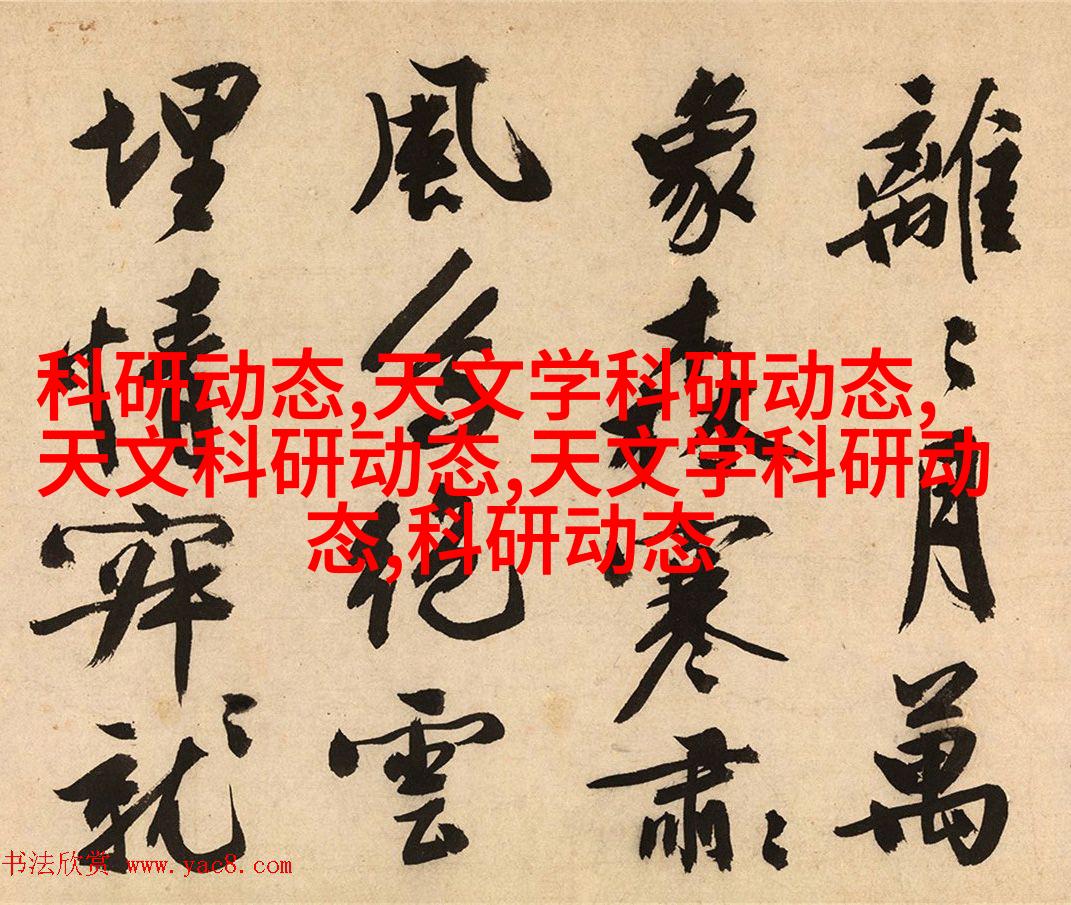 科研动态,天文学科研动态,
天文科研动态,天文学科研动
态,科研动态
離〻月萬
象森寒肅〻
風絕雲
埋情
书法欣赏 www.yac8.com